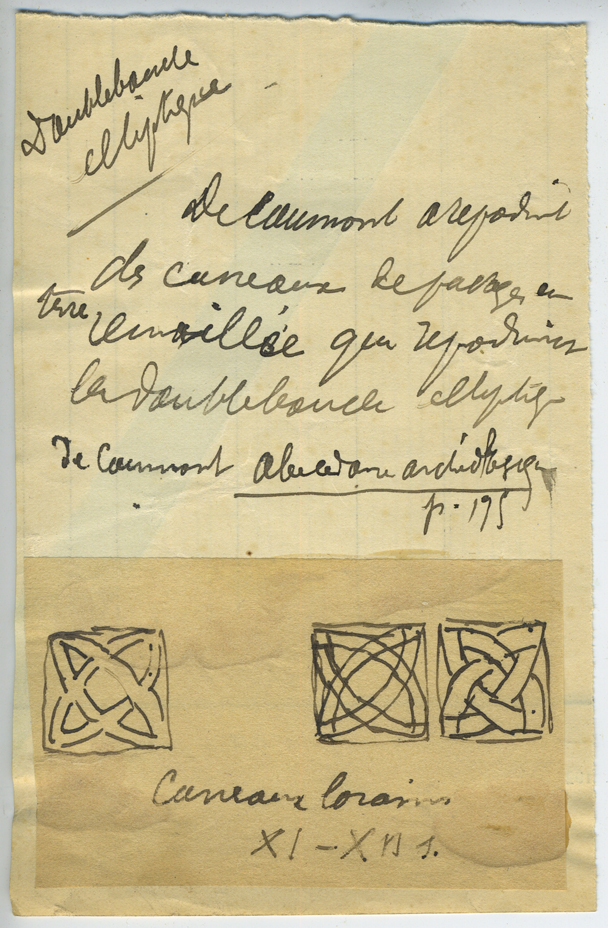 Doubleboucle
elliptique
De Caumont a reproduit
des carreaux de pavages en
terre émaillée qui reproduisent
la doubleboucle elliptiq
De Caumont abecedaire archéologique
p. 195
Carreaux lorrains
XI - XII s.